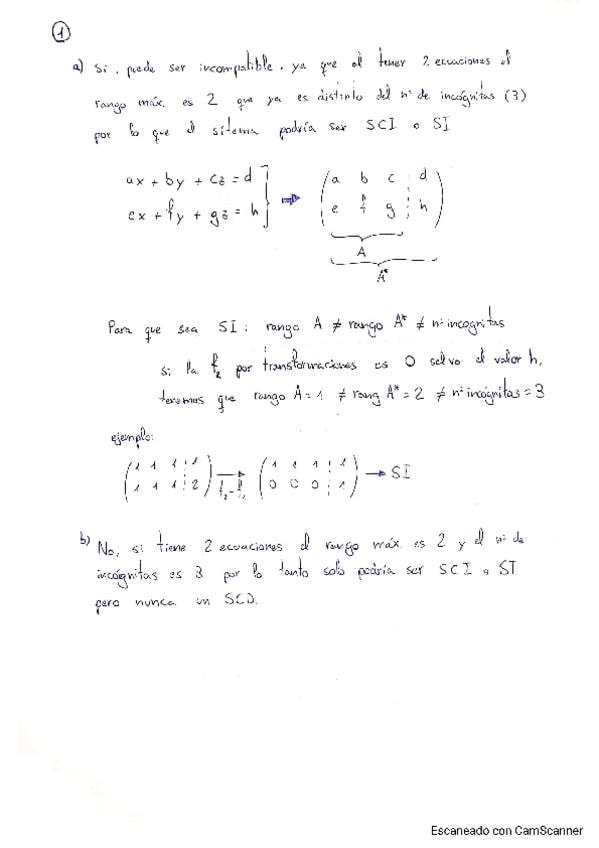 1
a) Si, puede ser incompatible, ya que al tener 2 ecuaciones el
rango máx. es 2 que ya es distinto del nº de incógnitas (3)
por lo que el sistema podría ser SCI o SI
ax + by + cz = d
ex + fy + gz = h
a b c d
e f g h
A
A*
Para que sea SI: rango A ≠ rango A* ≠ nº incognitas
si la f₂ por transformaciones es 0 salvo el valor h,
tenemos que rango A = 1 ≠ rang A* = 2 ≠ nº incógnitas = 3
ejemplo:
(1 1 1 ¦ 1) (1 1 1 ¦ 1)
(1 1 1 ¦ 2) (0 0 0 ¦ 1) → SI
b) No, si tiene 2 ecuaciones el rango máx. es 2 y el nº de
incógnitas es 3 por lo tanto solo podría ser SCI o SI
pero nunca un SCD.
Escaneado con CamScanner